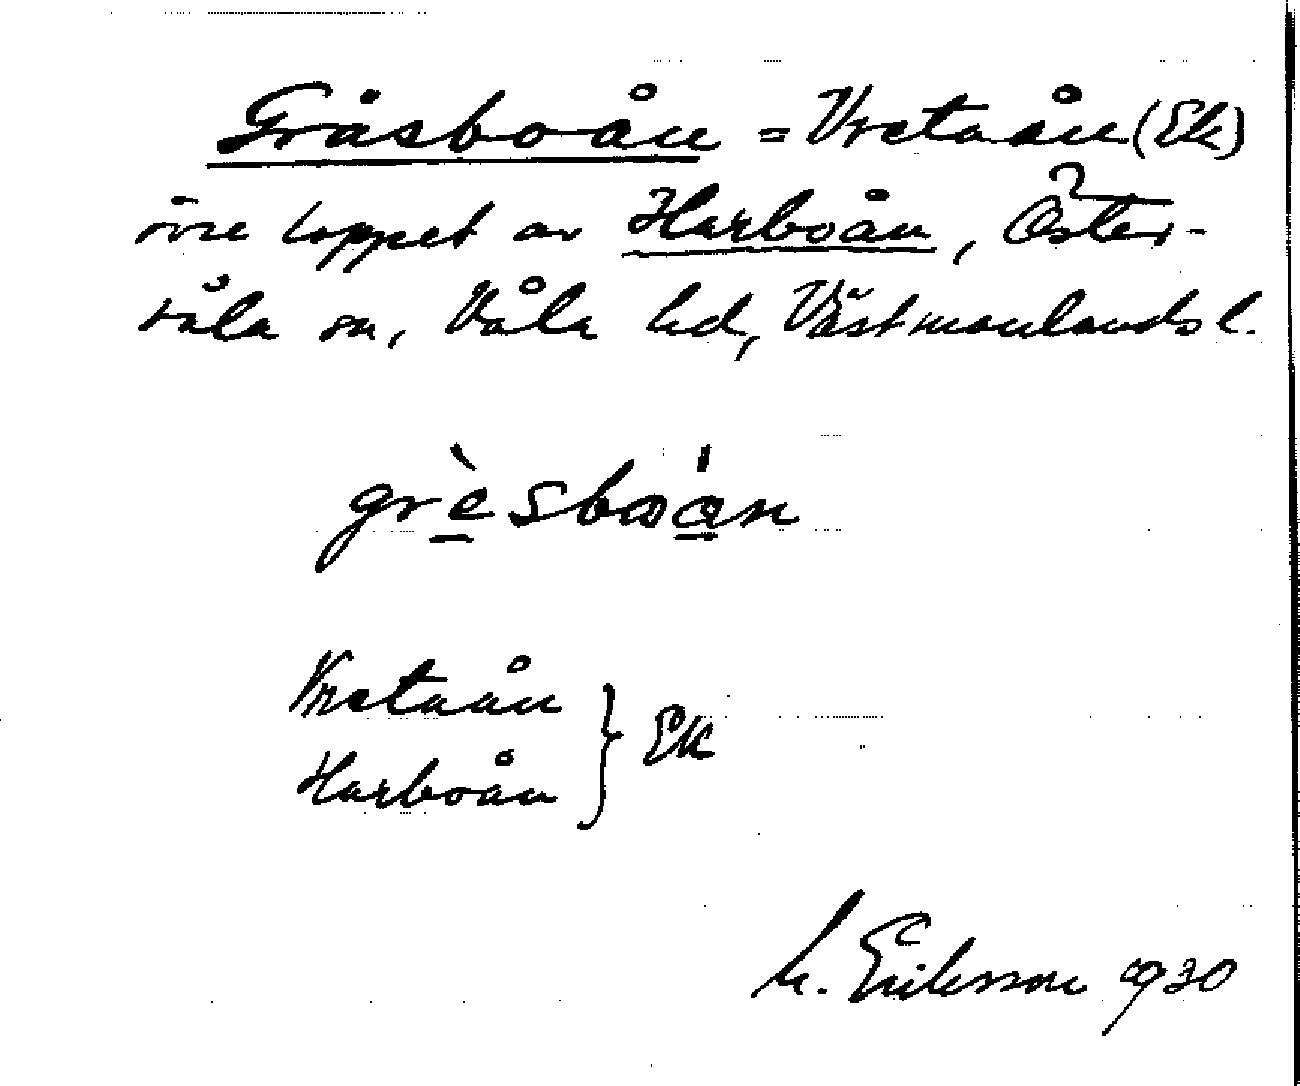 Gräsboån = Vretaån (Ek)
övre loppet av Harboån, Öster-
våla sn, Våla hd, Västmanlands l.
grèsboån
Vretaån
Harboån } Ek
M. Eriksson 1930